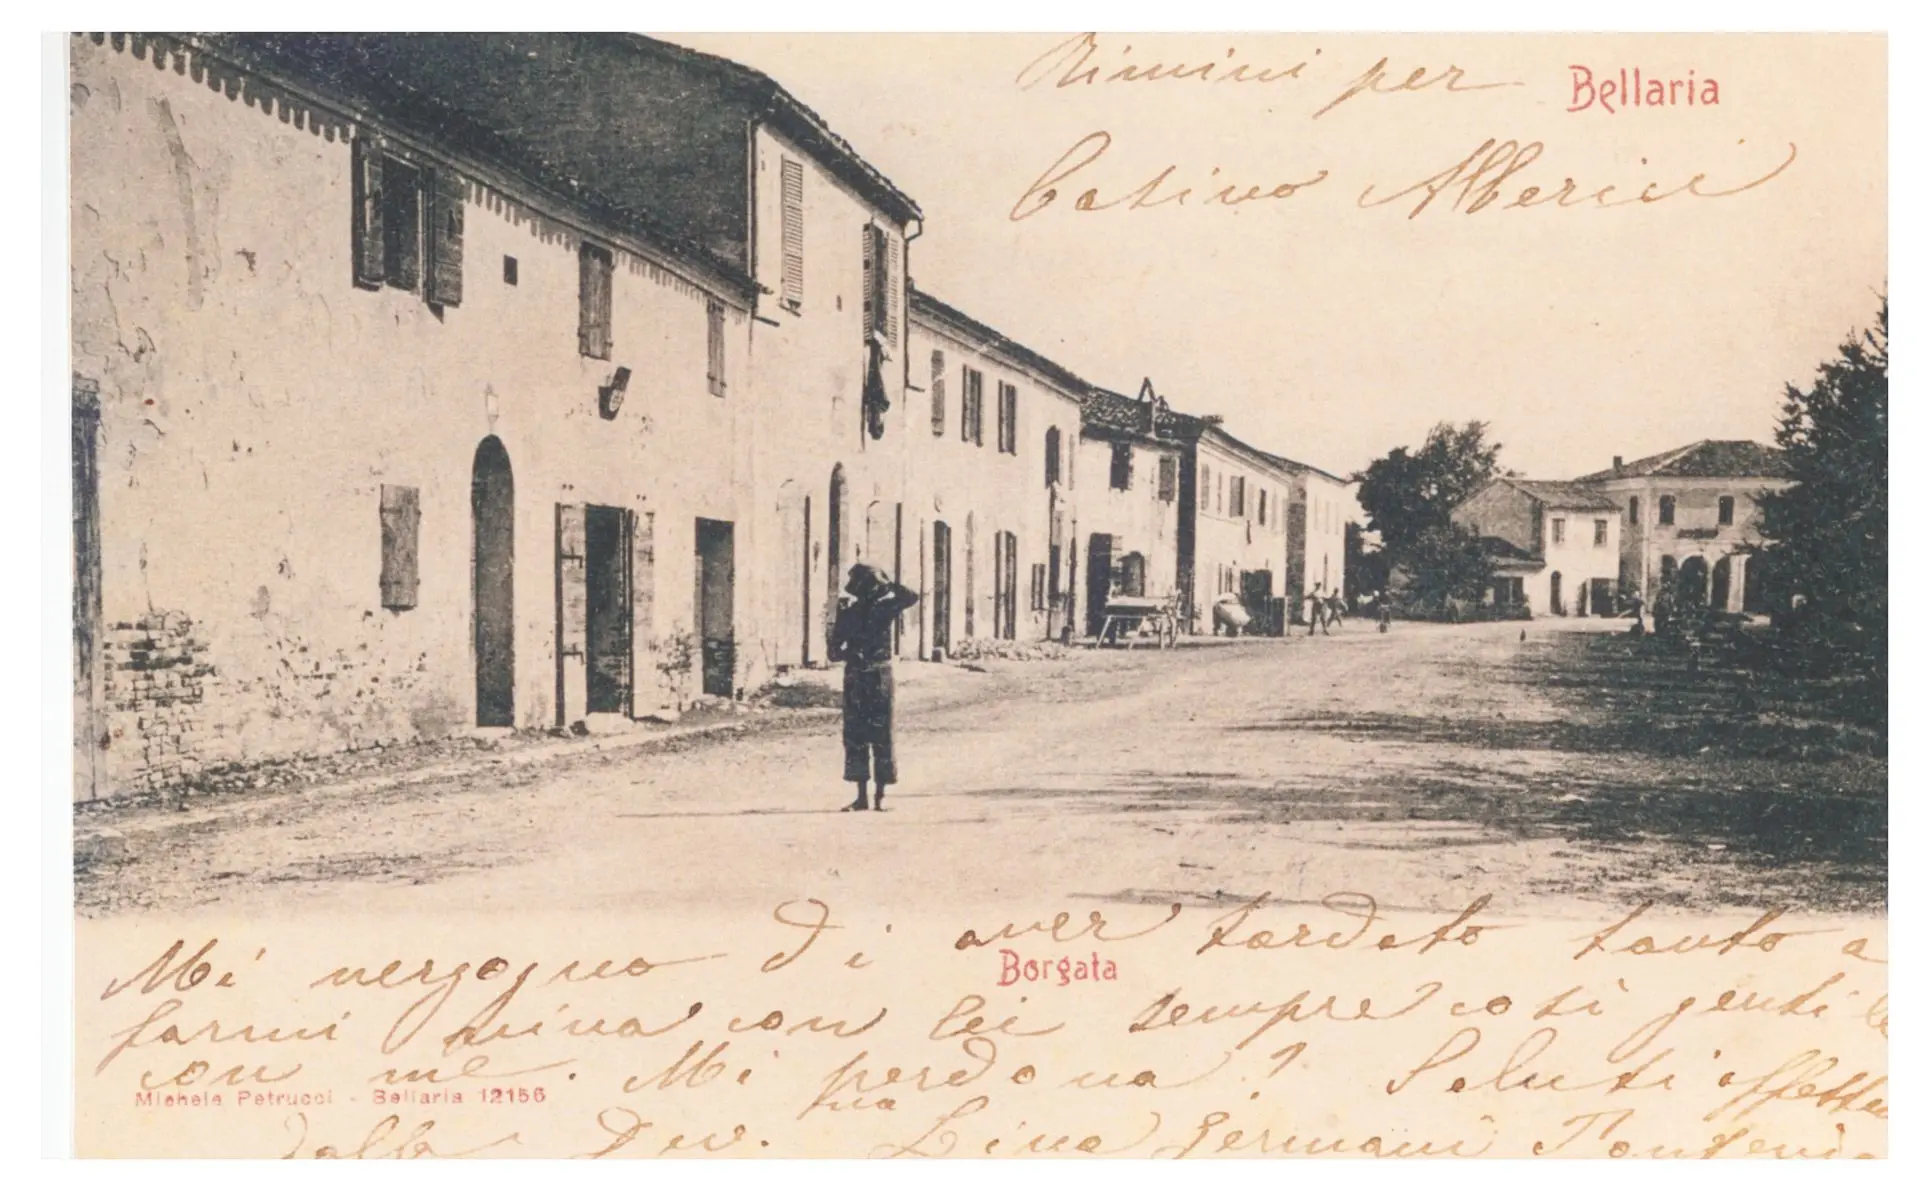 Rimini per Bellaria
Casino Alberici
Mi vergogno di aver tardato tanto a
Borgata
farmi viva con lei sempre così gentile
con me. Mi perdona? Saluti affettuo
Michele Petrucci - Bellaria 12156
dalla sua Dev. Lina Germani